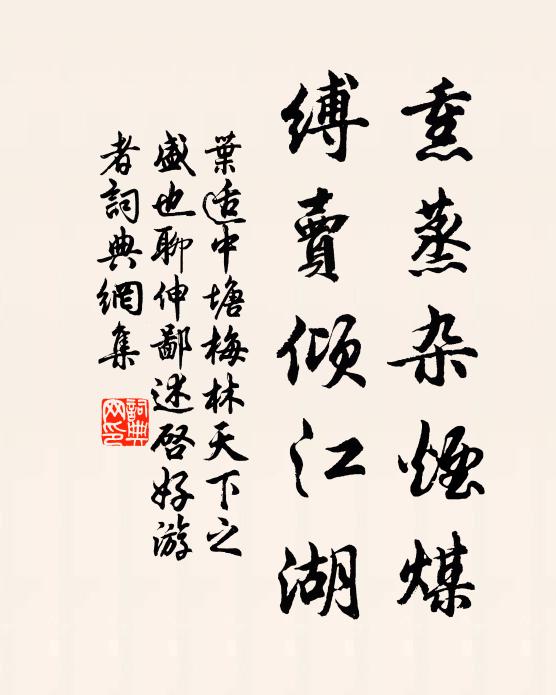 熏蒸杂煙煤
縛賣傾江湖
葉适中塘梅林天下之
盛也聊伸鄙述啓好游
者詞典網集
詞典
网印